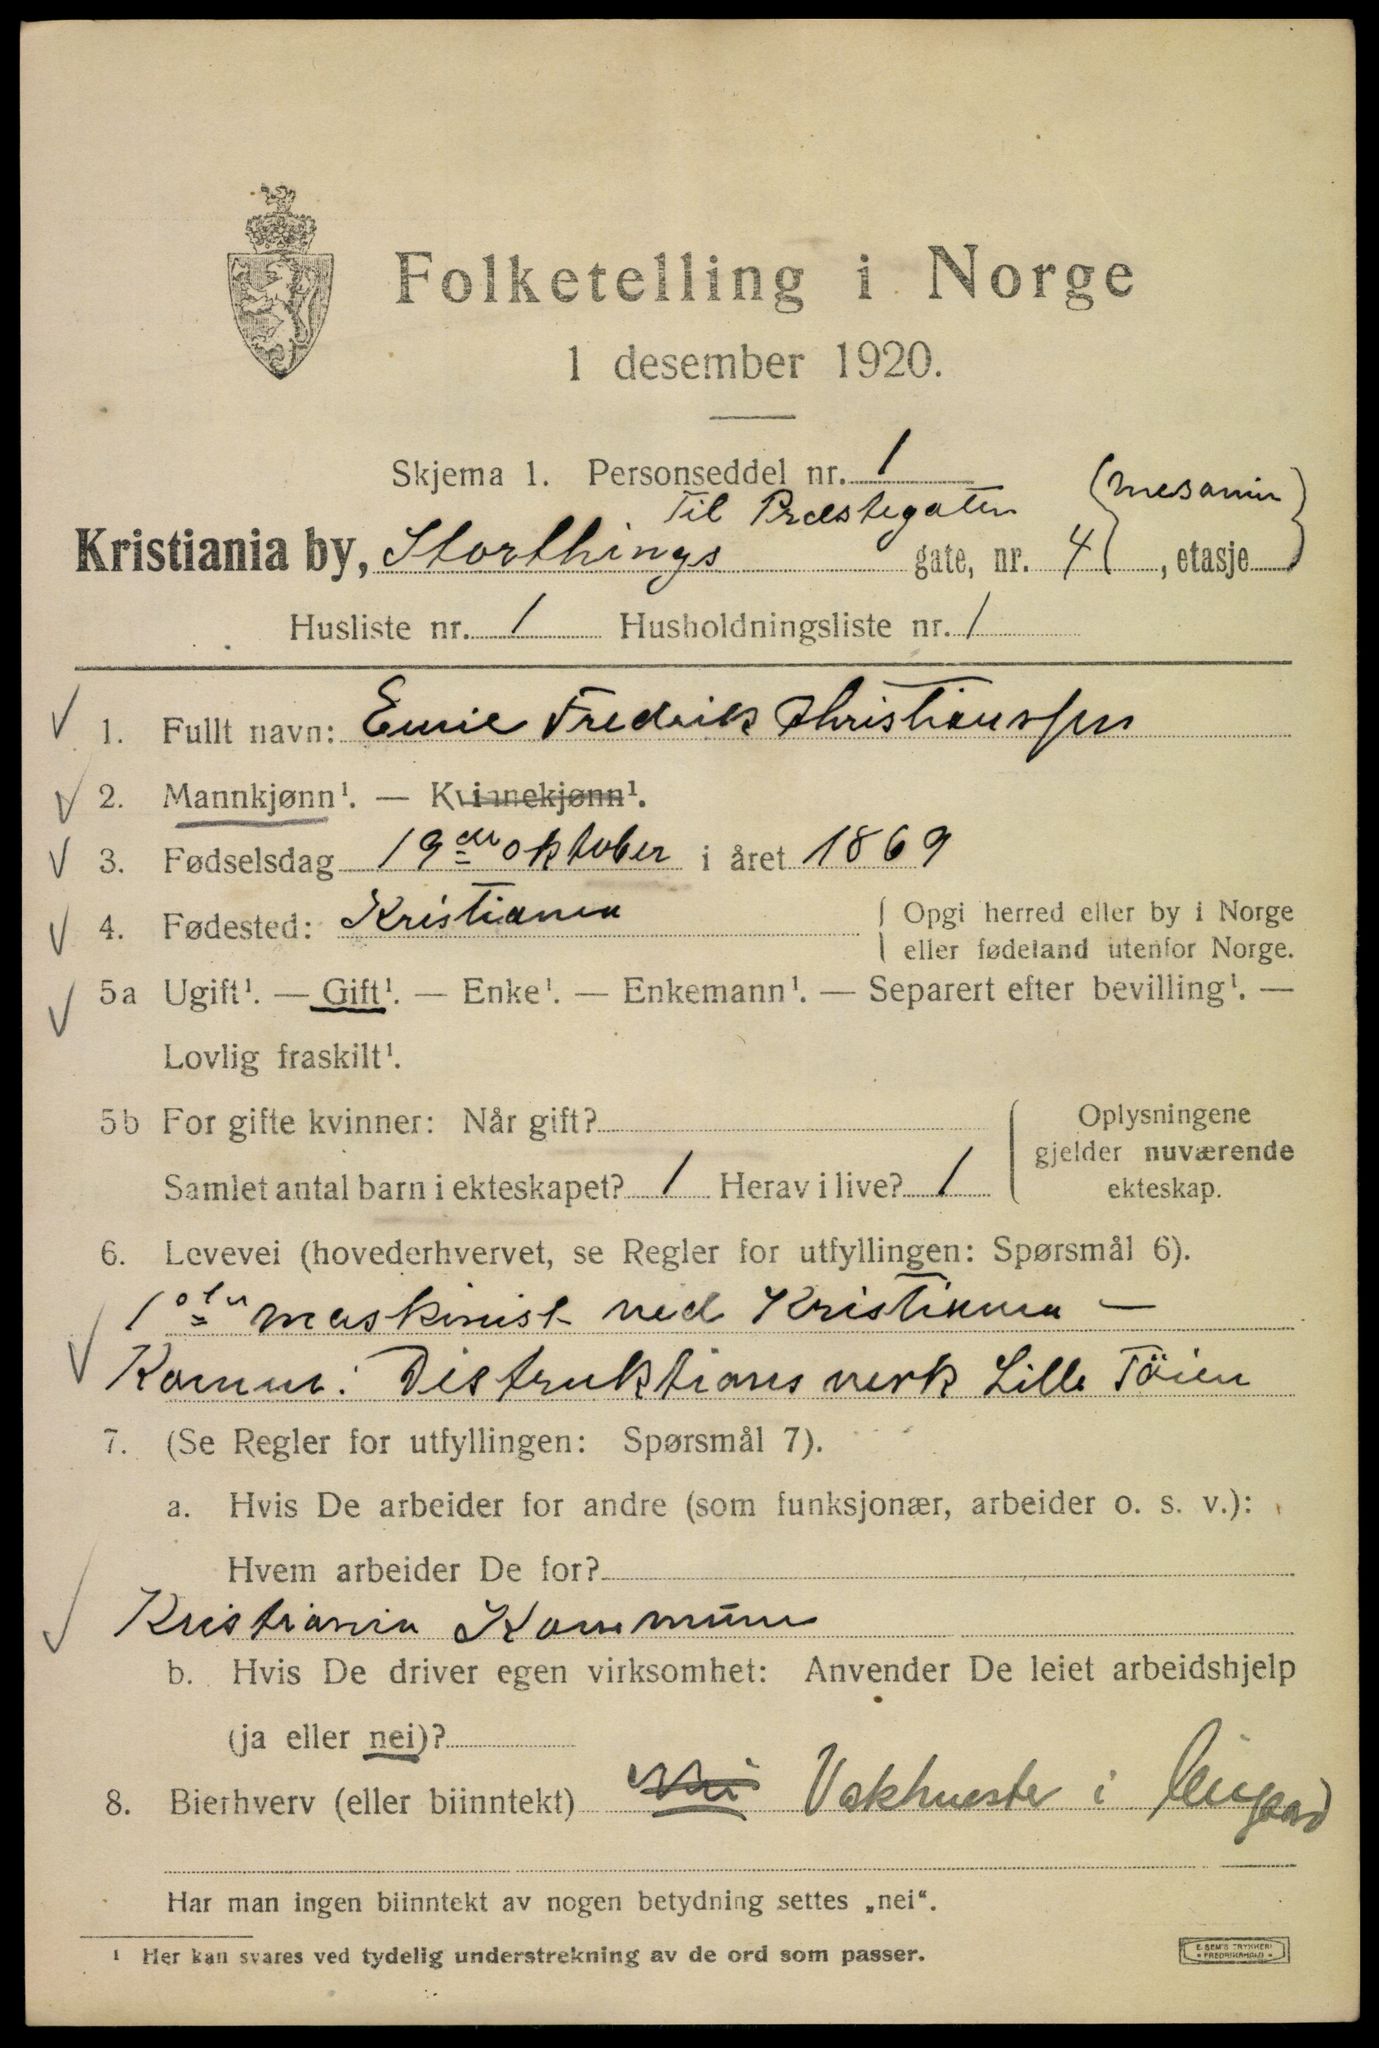 Folketelling i Norge
1 desember 1920.
Skjema 1. Personseddel nr. 1
Til Præstegaten (mesanin)
Kristiania by, Storthings gate, nr. 4, etasje
Husliste nr. 1 Husholdningsliste nr. 1
1. Fullt navn: Emil Fredrik Christianssen
2. Mannkjønn¹. — Kvinnekjønn¹.
3. Fødselsdag 19de oktober i året 1869
4. Fødested: Kristiania
Opgi herred eller by i Norge
eller fødeland utenfor Norge.
5a Ugift¹. — Gift¹. — Enke¹. — Enkemann¹. — Separert efter bevilling¹. —
Lovlig fraskilt¹.
5b For gifte kvinner: Når gift?
Samlet antal barn i ekteskapet? 1 Herav i live? 1
Oplysningene
gjelder nuværende
ekteskap.
6. Levevei (hovederhvervet, se Regler for utfyllingen: Spørsmål 6).
1ste maskinist ved Kristiania –
Komm: Distruktions verk Lille Töien
7. (Se Regler for utfyllingen: Spørsmål 7).
a. Hvis De arbeider for andre (som funksjonær, arbeider o. s. v.):
Hvem arbeider De for?
Kristiania Kommune
b. Hvis De driver egen virksomhet: Anvender De leiet arbeidshjelp
(ja eller nei)?
8. Bierhverv (eller biinntekt) nei Vaktmester i
Har man ingen biinntekt av nogen betydning settes „nei“.
¹ Her kan svares ved tydelig understrekning av de ord som passer.
E. SEM'S TRYKKERI
FREDRIKSHALD